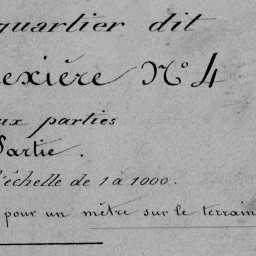 quartier dit
exiére N° 4
ux parties
Partie.
l'échelle de 1 à 1000.
pour un mètre sur le terrain